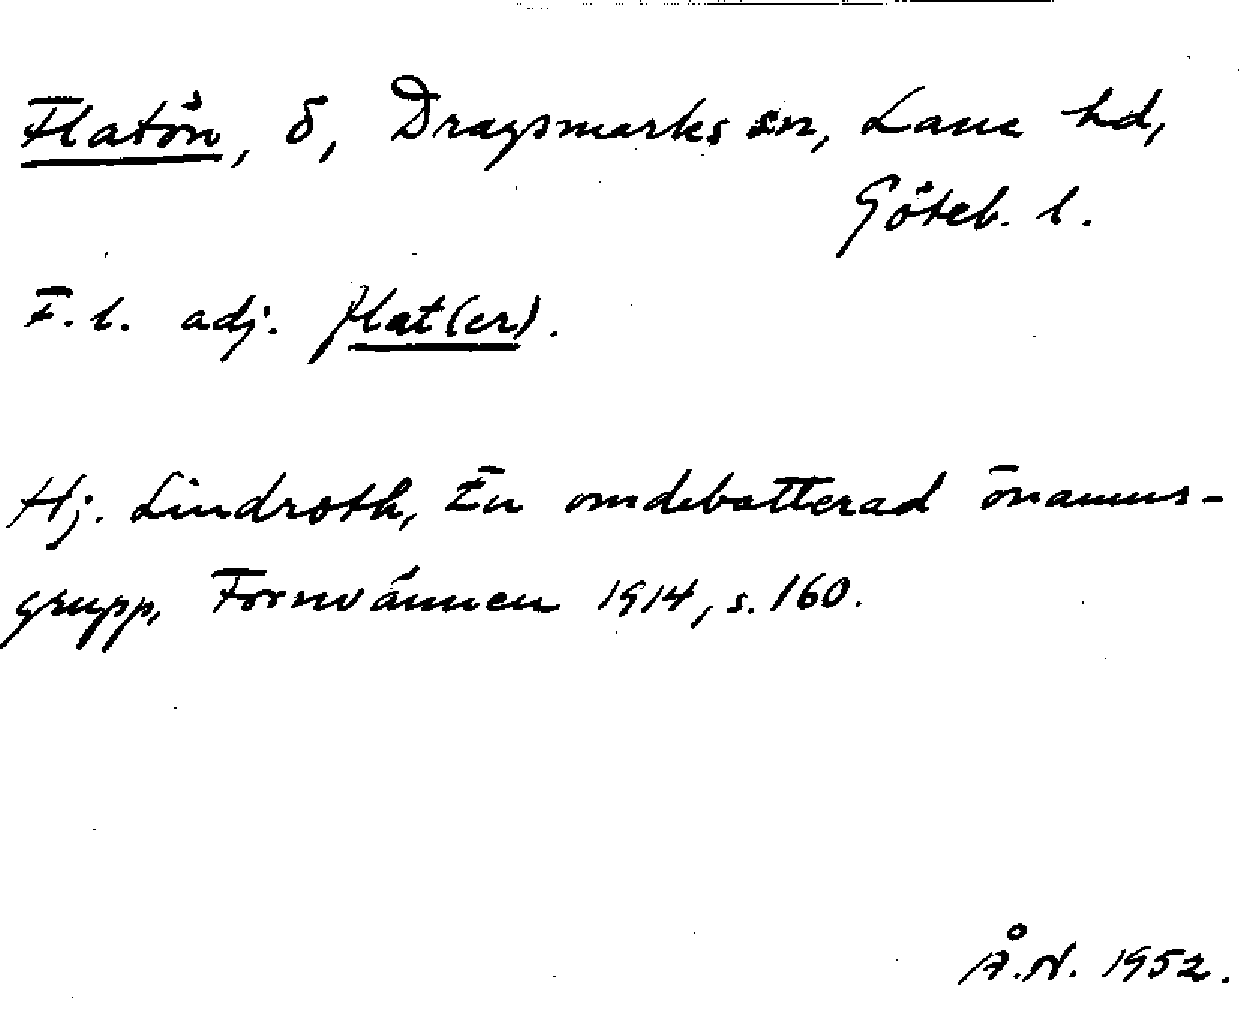 Flatön, ö, Dragsmarks sn, Lane hd,
Göteb. l.
F. l. adj. flat(er).
Hj. Lindroth, En omdebatterad önamns-
grupp, Fornvännen 1914, s. 160.
Å.N. 1952.